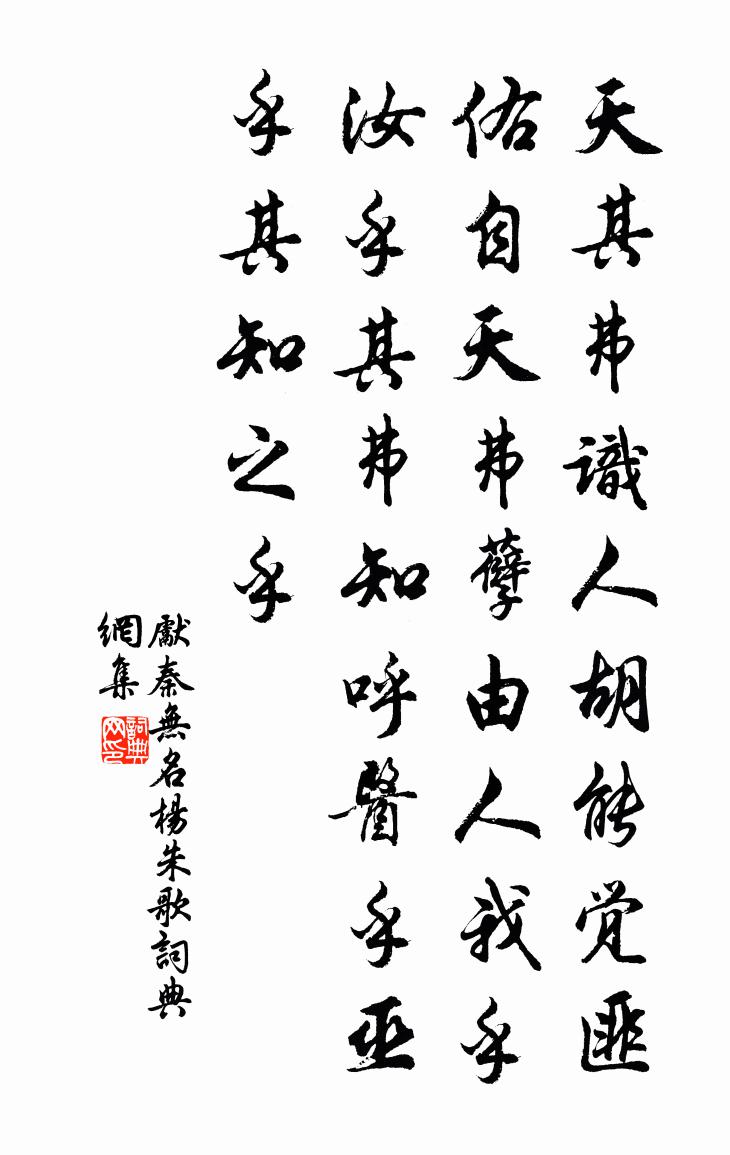 天其弗識人胡能觉匪
佑自天弗孽由人我乎
汝乎其弗知呼醫乎巫
乎其知之乎
獻秦無名楊朱歌詞典
網集
詞典
网印